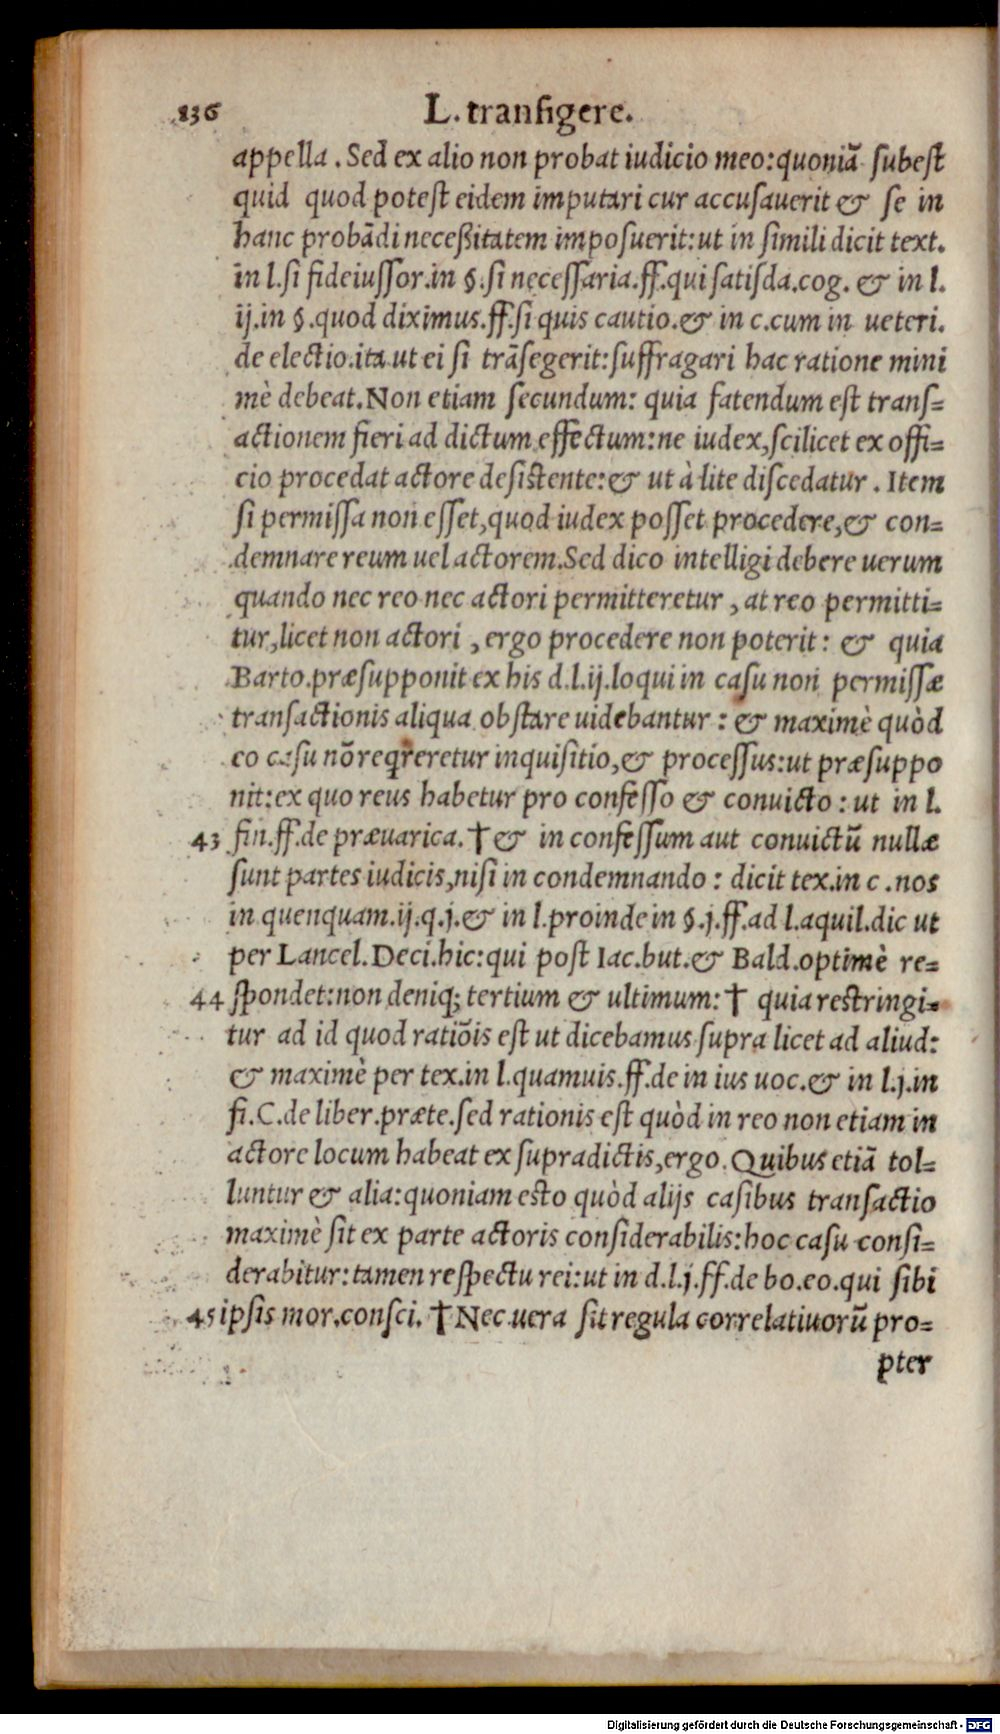 836 L. transigere.
appella. Sed ex alio non probat iudicio meo: quoniã subest
quid quod potest eidem imputari cur accusauerit & se in
hanc probãdi neceßitatem imposuerit: ut in simili dicit text.
in l. si fideiussor. in §. si necessaria. ff. qui satisda. cog. & in l.
ij. in §. quod diximus. ff. si quis cautio. & in c. cum in ueteri.
de electio. ita ut ei si trãsegerit: suffragari hac ratione mini
mè debeat. Non etiam secundum: quia fatendum est trans=
actionem fieri ad dictum effectum: ne iudex, scilicet ex offi=
cio procedat actore desistente: & ut à lite discedatur. Item
si permissa non esset, quod iudex posset procedere, & con=
demnare reum uel actorem. Sed dico intelligi debere uerum
quando nec reo nec actori permitteretur, at reo permitti=
tur, licet non actori, ergo procedere non poterit: & quia
Barto. præsupponit ex his d. l. ij. loqui in casu non permissæ
transactionis aliqua obstare uidebantur: & maximè quòd
eo casu nõ reqreretur inquisitio, & processus: ut præsuppo
nit: ex quo reus habetur pro confesso & conuicto: ut in l.
43 fin. ff. de præuarica. † & in confessum aut conuictũ nullæ
sunt partes iudicis, nisi in condemnando: dicit tex. in c. nos
in quenquam. ij. q. j. & in l. proinde in §. j. ff. ad l. aquil. dic ut
per Lancel. Deci. hic: qui post Iac. but. & Bald. optimè re=
44 spondet: non deniq; tertium & ultimum: † quia restringi=
tur ad id quod ratiõis est ut dicebamus supra licet ad aliud:
& maximè per tex. in l. quamuis. ff. de in ius uoc. & in l. j. in
fi. C. de liber. præte. sed rationis est quòd in reo non etiam in
actore locum habeat ex supradictis, ergo. Quibus etiã tol=
luntur & alia: quoniam esto quòd alijs casibus transactio
maximè sit ex parte actoris considerabilis: hoc casu consi=
derabitur: tamen respectu rei: ut in d. l. j. ff. de bo. eo. qui sibi
45 ipsis mor. consci. † Nec uera sit regula correlatiuorũ pro=
pter
Digitalisierung gefördert durch die Deutsche Forschungsgemeinschaft - DFG